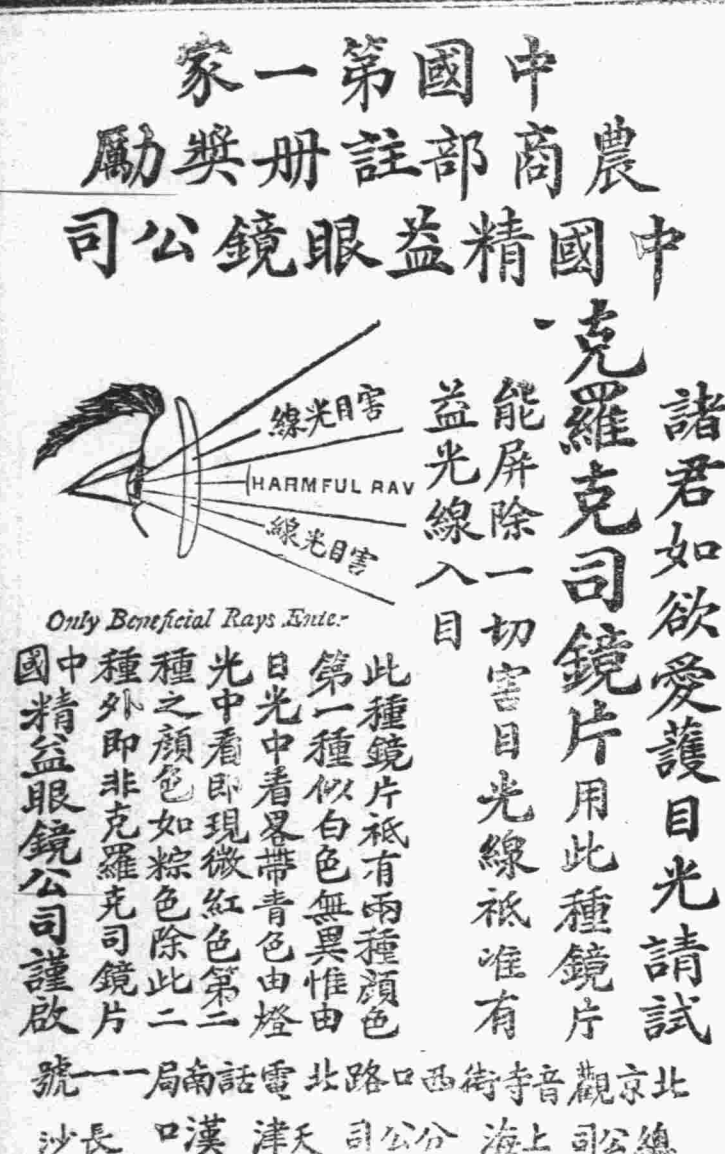 中國第一家
農商部註册奬勵
中國精益眼鏡公司
諸君如欲愛護目光請試
克羅克司鏡片用此種鏡片
能屏除一切害目光線祗准有
益光線入目
害目光線
HARMFUL RAY
害目光線
Only Beneficial Rays Enter
此種鏡片祗有兩種顔色
第一種似白色無異惟由
日光中看畧帶青色由燈
光中看即現微紅色第二
種之顔色如粽色除此二
種外即非克羅克司鏡片
中國精益眼鏡公司謹啟
北京觀音寺街西口路北電話南局一一號
總公司上海分公司天津漢口長沙